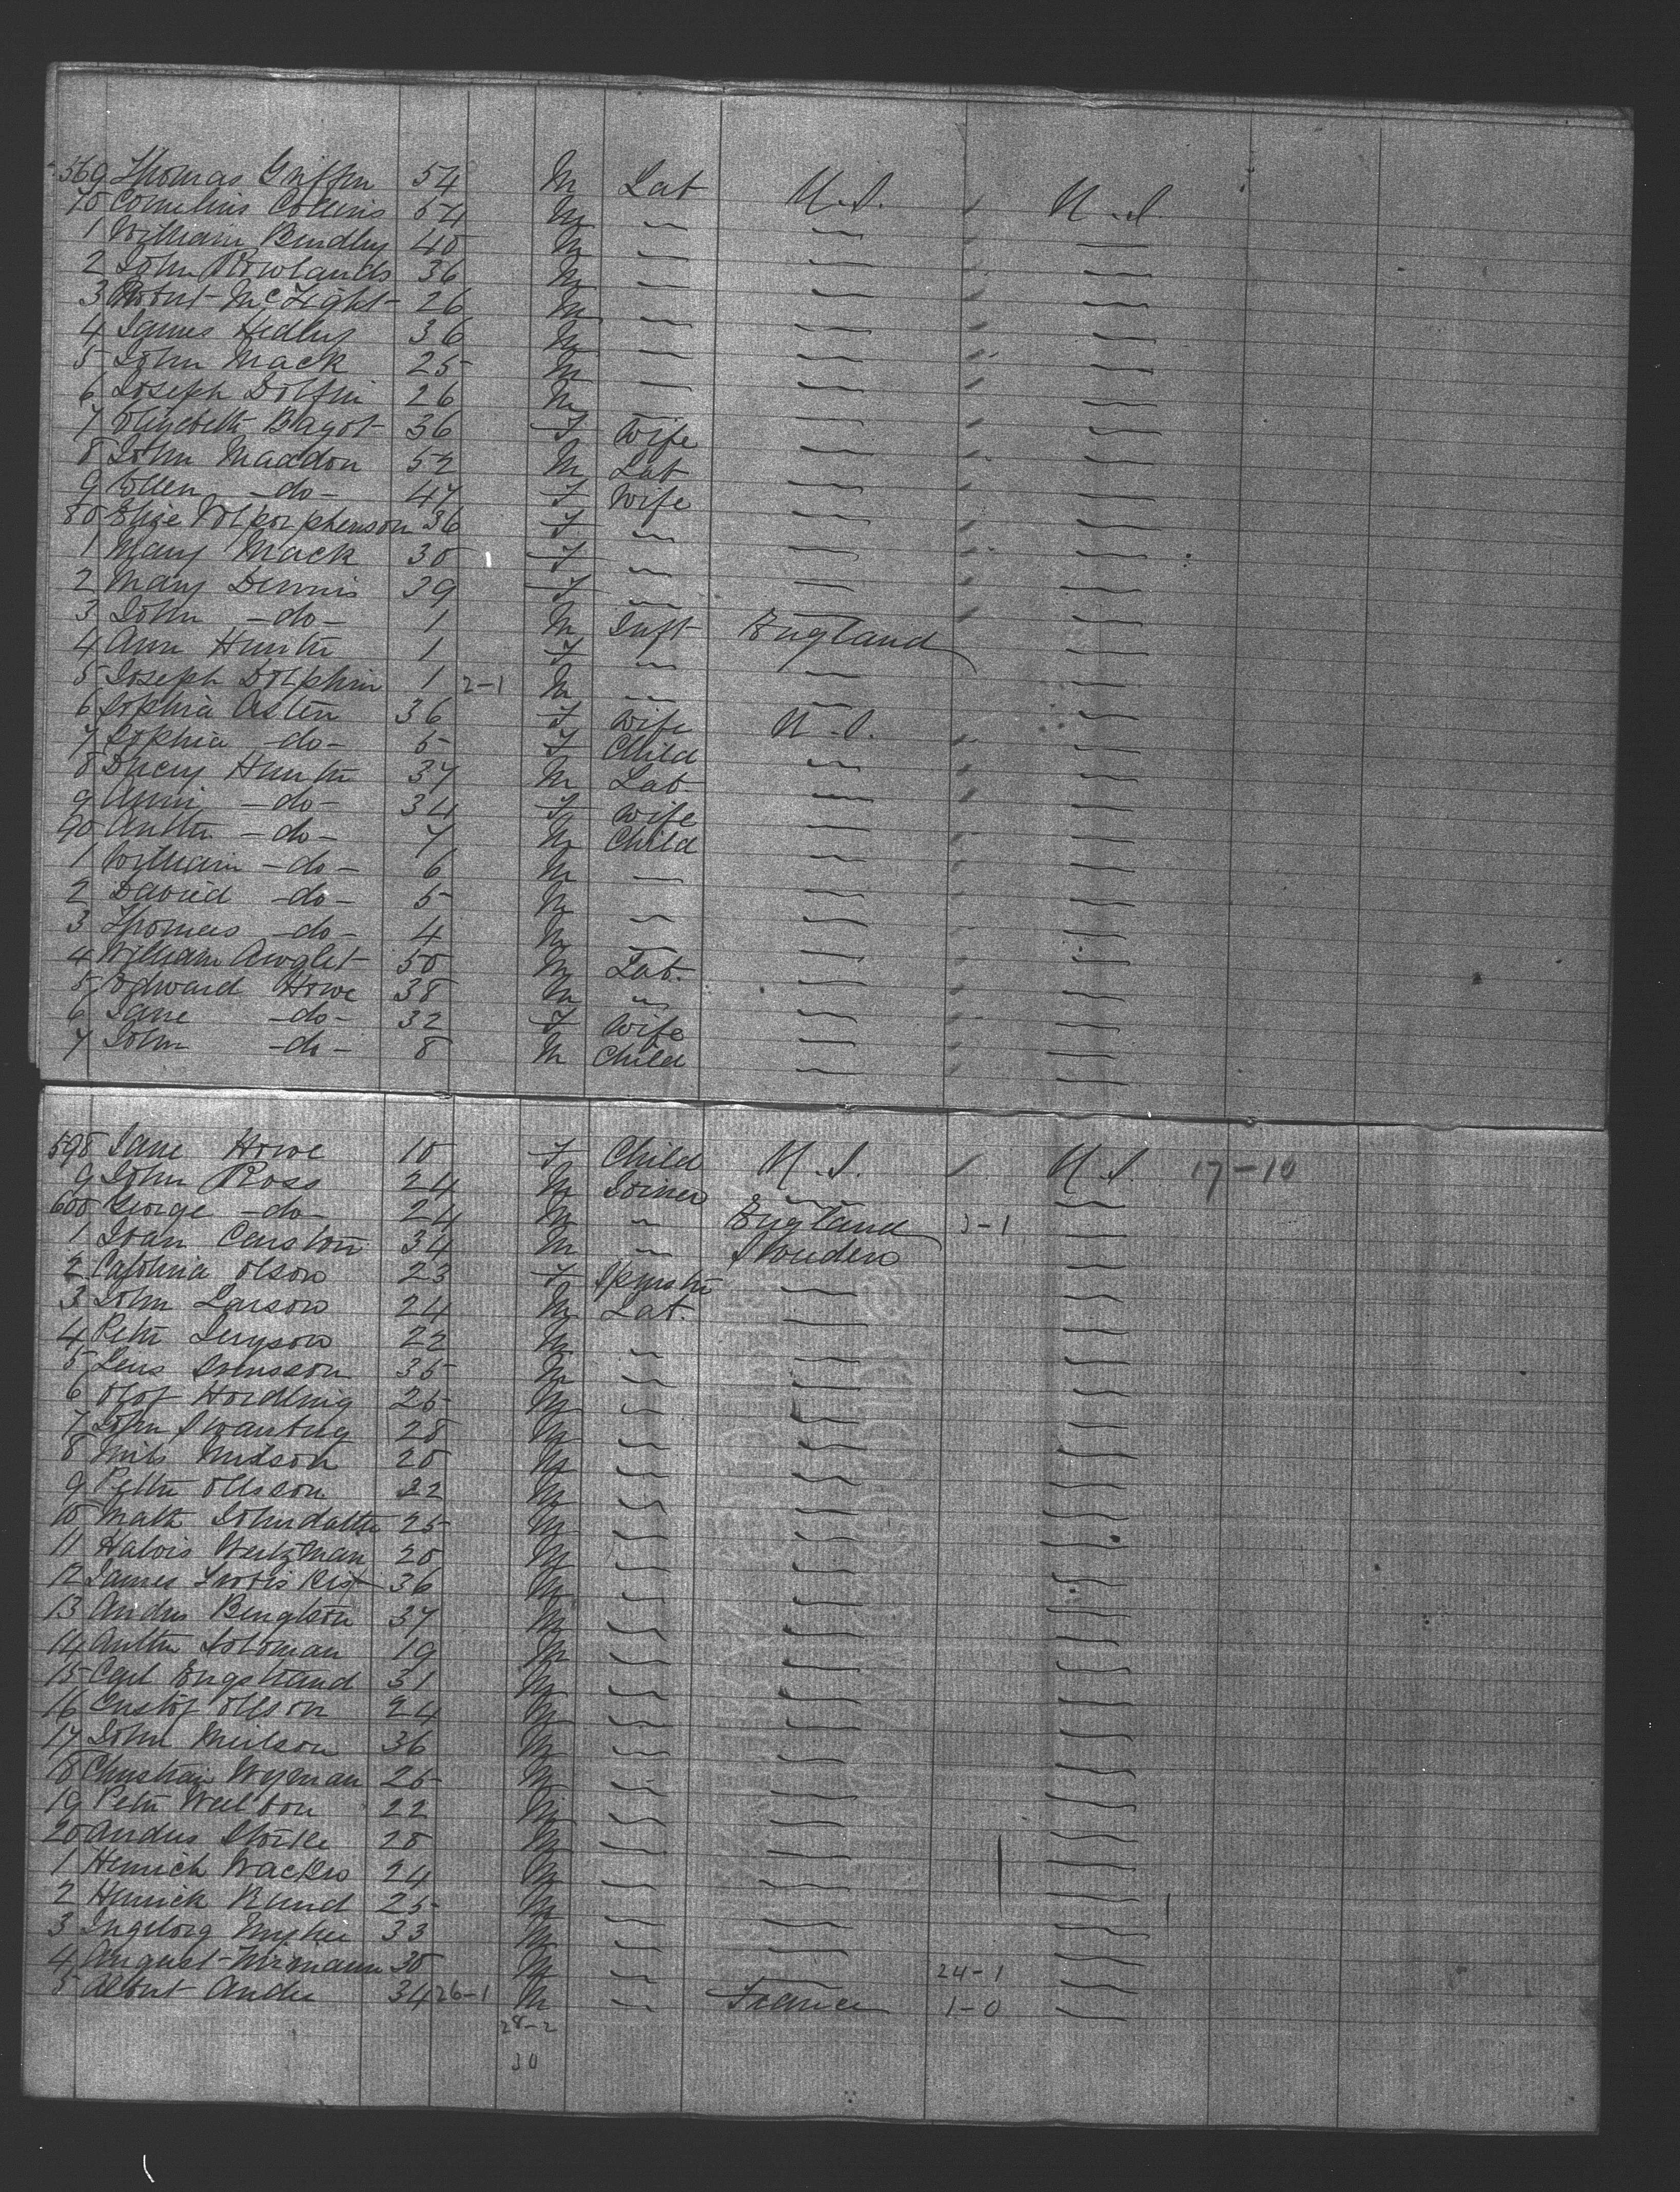 569 Thomas Griffin 54 M Lab U.S. U.S.
70 Cornelius Collins 54 M " " "
1 William Bindley 40 M " " "
2 John Rowlands 36 M " " "
3 Robert McLight 26 M " " "
4 James Hedley 36 M " " "
5 John Mack 25 M " " "
6 Joseph Dolfin 26 M " " "
7 Elizabeth Bagot 36 F Wife " "
8 John Maddon 52 M Lab " "
9 Ellen -do- 47 F Wife " "
80 Elize 36 F " " "
1 Mary Mack 30 F " " "
2 Mary Dennis 29 F " " "
3 John -do- 1 M Inft England "
4 Ann Hunter 1 F " " "
5 Joseph Dolphin 1 2-1 M " " "
6 Sophia Asten 36 F Wife U.S. "
7 Sophia -do- 5 F Child " "
8 Hunter 37 M Lab " "
9 Ann -do- 34 F Wife " "
90 Arthur -do- 7 M Child " "
1 William -do- 6 M " " "
2 David -do- 5 M " " "
3 Thomas -do- 4 M " " "
4 William 50 M Lab. " "
5 Edward Howe 38 M " " "
6 Jane -do- 32 F Wife " "
7 John -do- 8 M Child " "
598 Jane Howe 10 F Child U.S. U.S. 17-10
9 John Ross 24 M Joiner " "
600 George -do- 24 M " England 3-1 "
1 Carlson 34 M " Sweden "
2 Olson 23 F Spinster " "
3 John Larson 24 M Lab. " "
4 Peter 22 M " " "
5 Jens Svensson 35 M " " "
6 Olof Hordling 25 M " " "
7 John Swanberg 28 M " " "
8 Nils 20 M " " "
9 Petter Ollsson 22 M " " "
10 25 M " " "
11 20 M " " "
12 James 36 M " " "
13 Andrs Bengtson 37 M " " "
14 Arthur Soloman 19 M " " "
15 Carl Engstrand 31 M " " "
16 Gustof Ollson 24 M " " "
17 John Neilson 36 M " " "
18 Christian Wyman 25 M " " "
19 Peter 22 M " " "
20 Andrs 28 M " " "
1 Heinrich 24 M " " "
2 Henrick Rund 25 M " " "
3 33 M " " "
4 August 30 M " " 24-1 "
5 Albert Andre 34 26-1 M " France 1-0 "
28-2
30